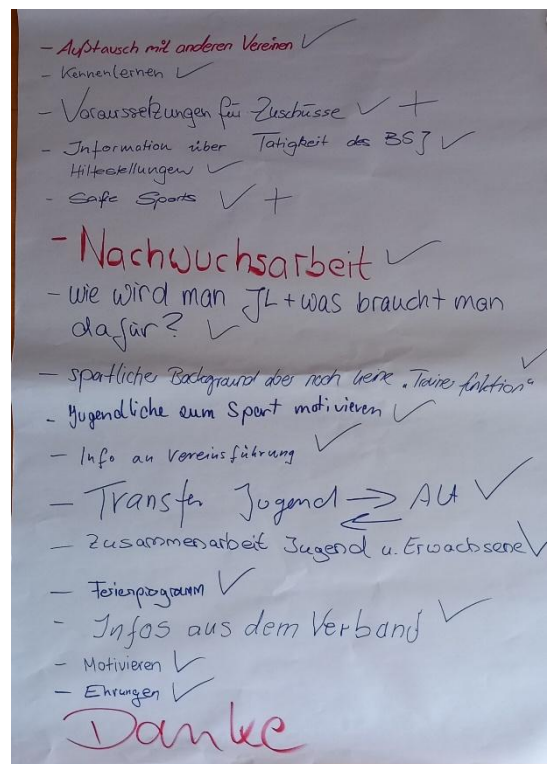 - Außtausch mit anderen Vereinen ✓
- Kennenlernen ✓
- Voraussetzungen für Zuschüsse ✓ +
- Information über Tätigkeit des BSJ ✓
Hilfestellungen ✓
- Safe Sports ✓ +
- Nachwuchsarbeit ✓
- wie wird man JL + was braucht man
dafür? ✓
- sportlicher Background aber noch keine "Trainerfunktion" ✓
- Jugendliche zum Sport motivieren ✓
- Info an Vereinsführung ✓
- Transfer Jugend → ← ✓
- Zusammenarbeit Jugend u. Erwachsene ✓
- Ferienprogramm ✓
- Infos aus dem Verband ✓
- Motivieren ✓
- Ehrungen ✓
Danke